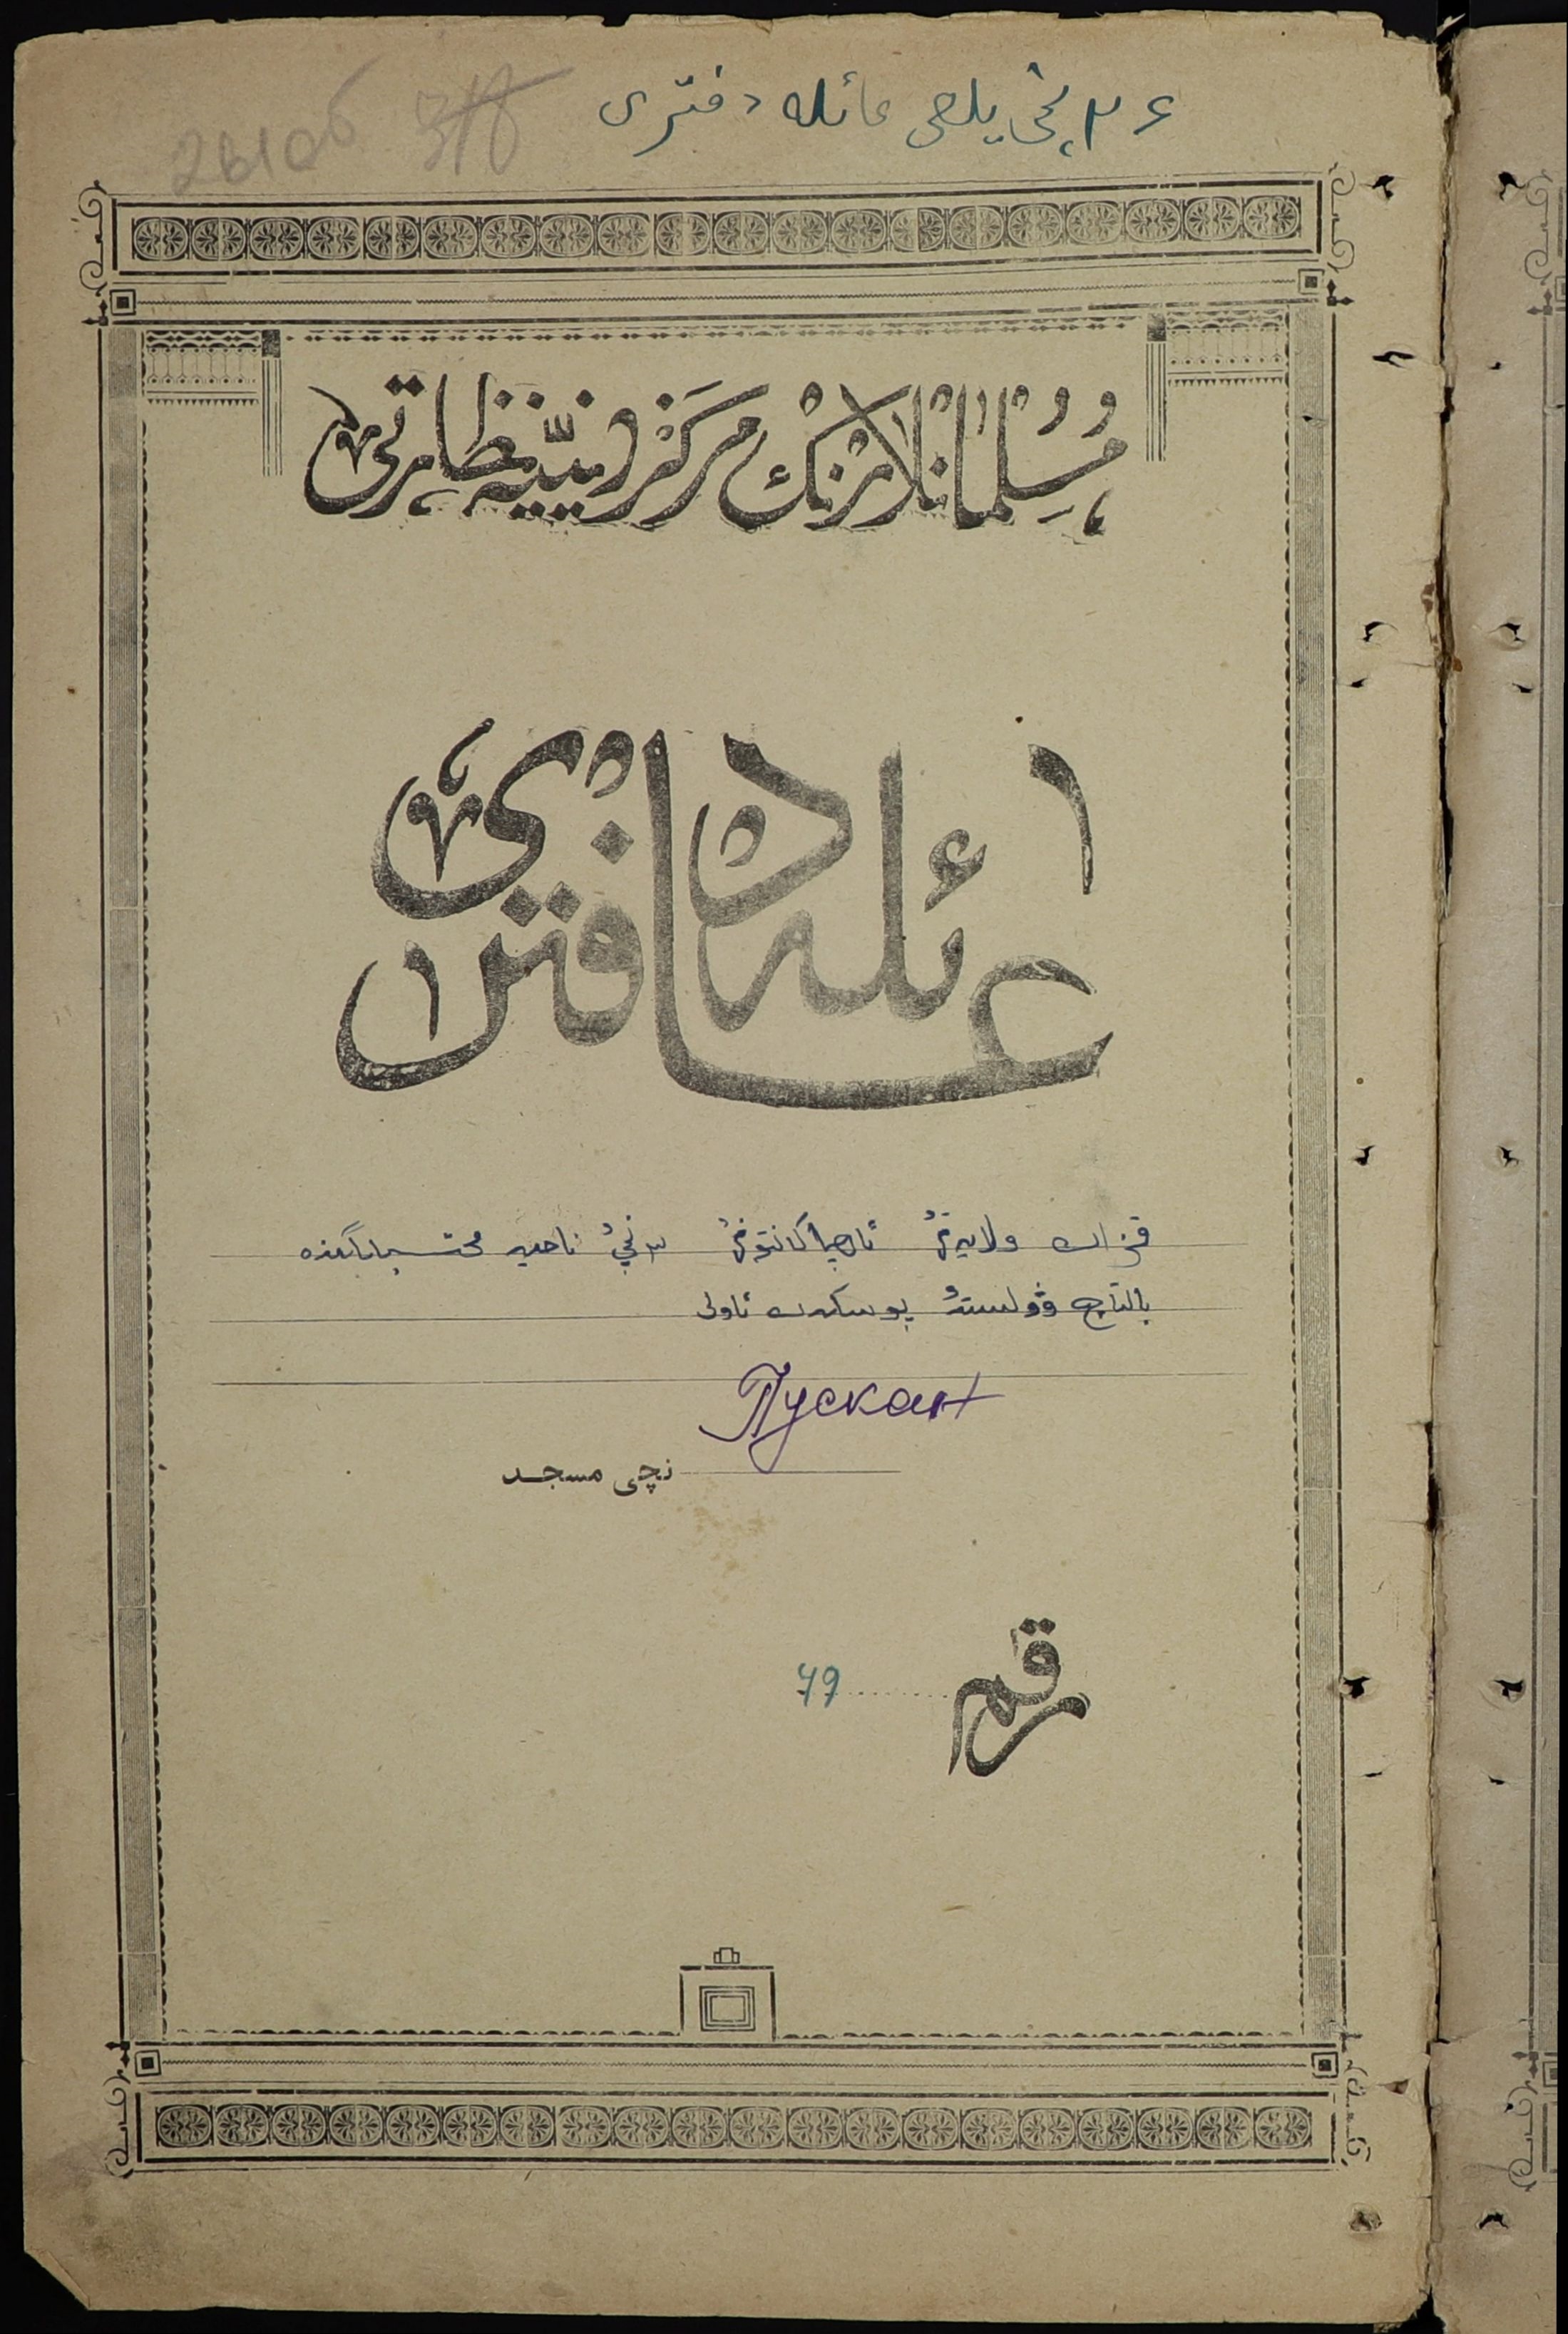 ۲۶ نچی یلغی عائله دفتری
مسلمانلارنڭ مركز دينيه نظارتی
عائله دفتری
قزان ولايتی ئارچا كانتونی ۳ نچی ناحيه محتسباتنده
بالتاچ وولستی پوسكان ئاولی
Пускан
نچی مسجد
رقم 79